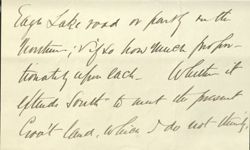 Eagle Lake road or partly on the
Northern; & if so how much propor-
tionately upon each - Whether it
extends South to meet the present
Gov't land, which I do not think,